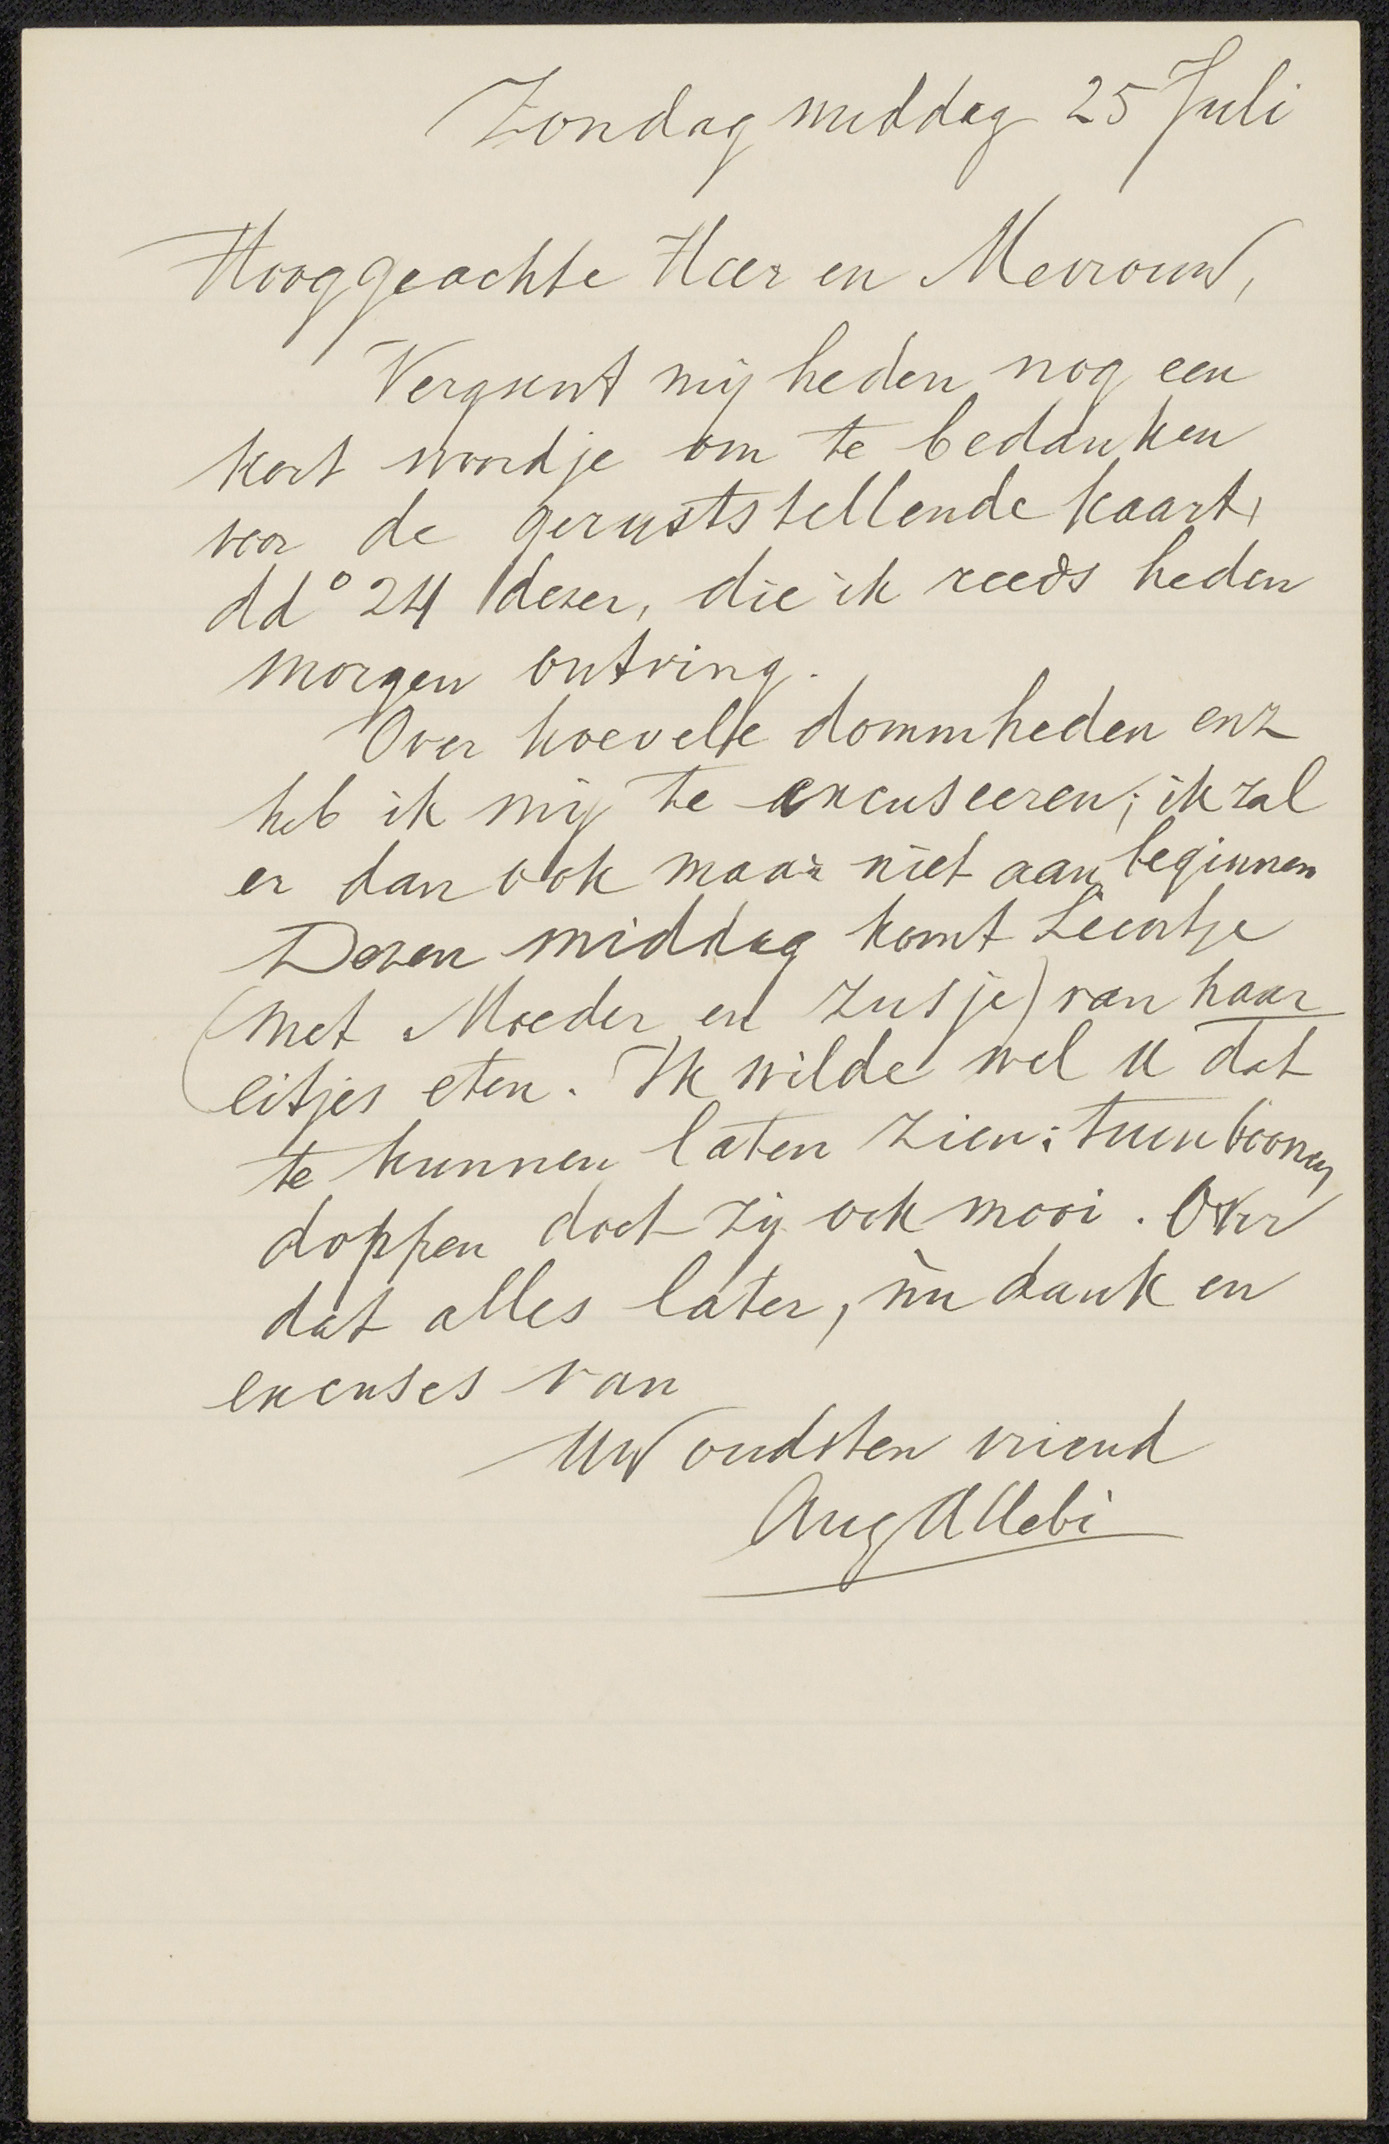 Zondag middag 25 Juli
Hooggeachte Heer en Mevrouw,
Vergunt mij heden nog een
kort woordje om te bedanken
voor de geruststellende kaart,
ddo 24 dezer, die ik reeds heden
morgen ontving.
Over hoevele dommheden enz
heb ik mij te excuseeren; ik zal
er dan ook maar niet aan beginnen
Dezen middag komt Leentje
(met Moeder en zusje) van haar
eitjes eten. Ik wilde wel U dat
te kunnen laten zien: tuinboonen
doppen doet zij ook mooi. Over
dat alles later, nu dank en
excuses van
UW oudsten vriend
Aug Allebé